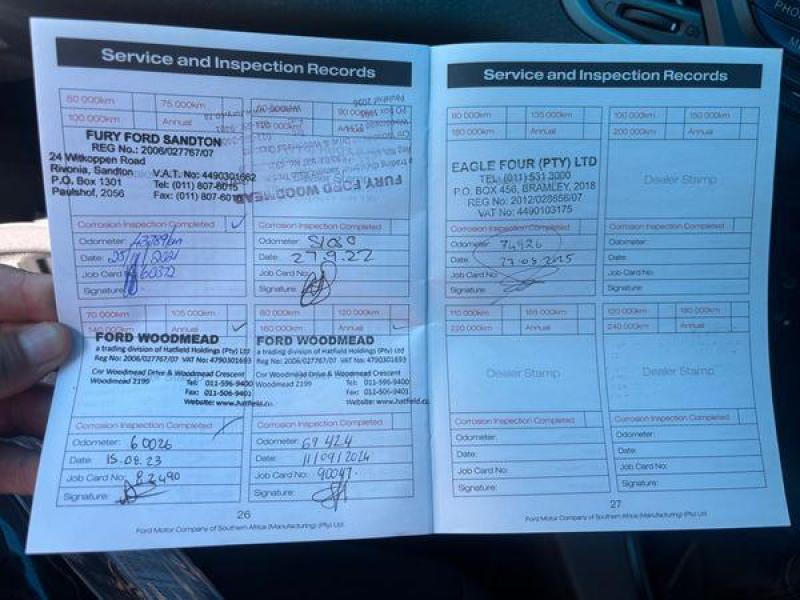 Service and Inspection Records
60 000km
75 000km
100 000km
Annual
FURY FORD SANDTON
REG No.: 2006/027767/07
24 Witkoppen Road
Rivonia, Sandton
V.A.T. No: 4490301662
P.O. Box 1301
Tel: (011) 807-6015
Paulshof, 2056
Fax: (011) 807-601
FURY, FORD WOODMEAD
Corrosion Inspection Completed
Odometer:
Date: 25/11/2021
Job Card 60372
Signature:
Corrosion Inspection Completed
Odometer:
Date: 27.9.22
Job Card No:
Signature:
70 000km
105 000km
140 000km
FORD WOODMEAD
a trading division of Hatfield Holdings (Pty) Ltd
Reg No: 2006/027767/07 VAT No: 4790301693
Cnr Woodmead Drive & Woodmead Crescent
Woodmead 2199
Tel: 011-596-9400
Fax: 011-506-9401
Website: www.hatfield.co
Corrosion Inspection Completed
Odometer: 60026
Date: 15.08.23
Job Card No: 82490
Signature:
80 000km
120 000km
160 000km
Annual
FORD WOODMEAD
a trading division of Hatfield Holdings (Pty) Ltd
Reg No: 2006/027767/07 VAT No: 4790301
Cnr Woodmead Drive & Woodmead Crescent
Woodmead 2199
Tel: 011-596-9400
Fax: 011-506-9401
Website: www.hatfield.co
Corrosion Inspection Completed
Odometer: 69 424
Date: 11/09/2024
Job Card No: 90047
Signature:
26
Ford Motor Company of Southern Africa (Manufacturing) (Pty) Ltd
Service and Inspection Records
90 000km
135 000km
180 000km
Annual
EAGLE FOUR (PTY) LTD
TEL: (011) 531 3000
P.O. BOX 456, BRAMLEY, 2018
REG No: 2012/028656/07
VAT No: 4490103175
Corrosion Inspection Completed
Odometer: 74926
Date:
Job Card No:
Signature:
100 000km
150 000km
200 000km
Annual
Dealer Stamp
Corrosion Inspection Completed
Odometer:
Date:
Job Card No:
Signature:
110 000km
165 000km
220 000km
Annual
Dealer Stamp
Corrosion Inspection Completed
Odometer:
Date:
Job Card No:
Signature:
120 000km
180 000km
240 000km
Annual
Dealer Stamp
Corrosion Inspection Completed
Odometer:
Date:
Job Card No:
Signature:
27
Ford Motor Company of Southern Africa (Manufacturing) (Pty) Ltd